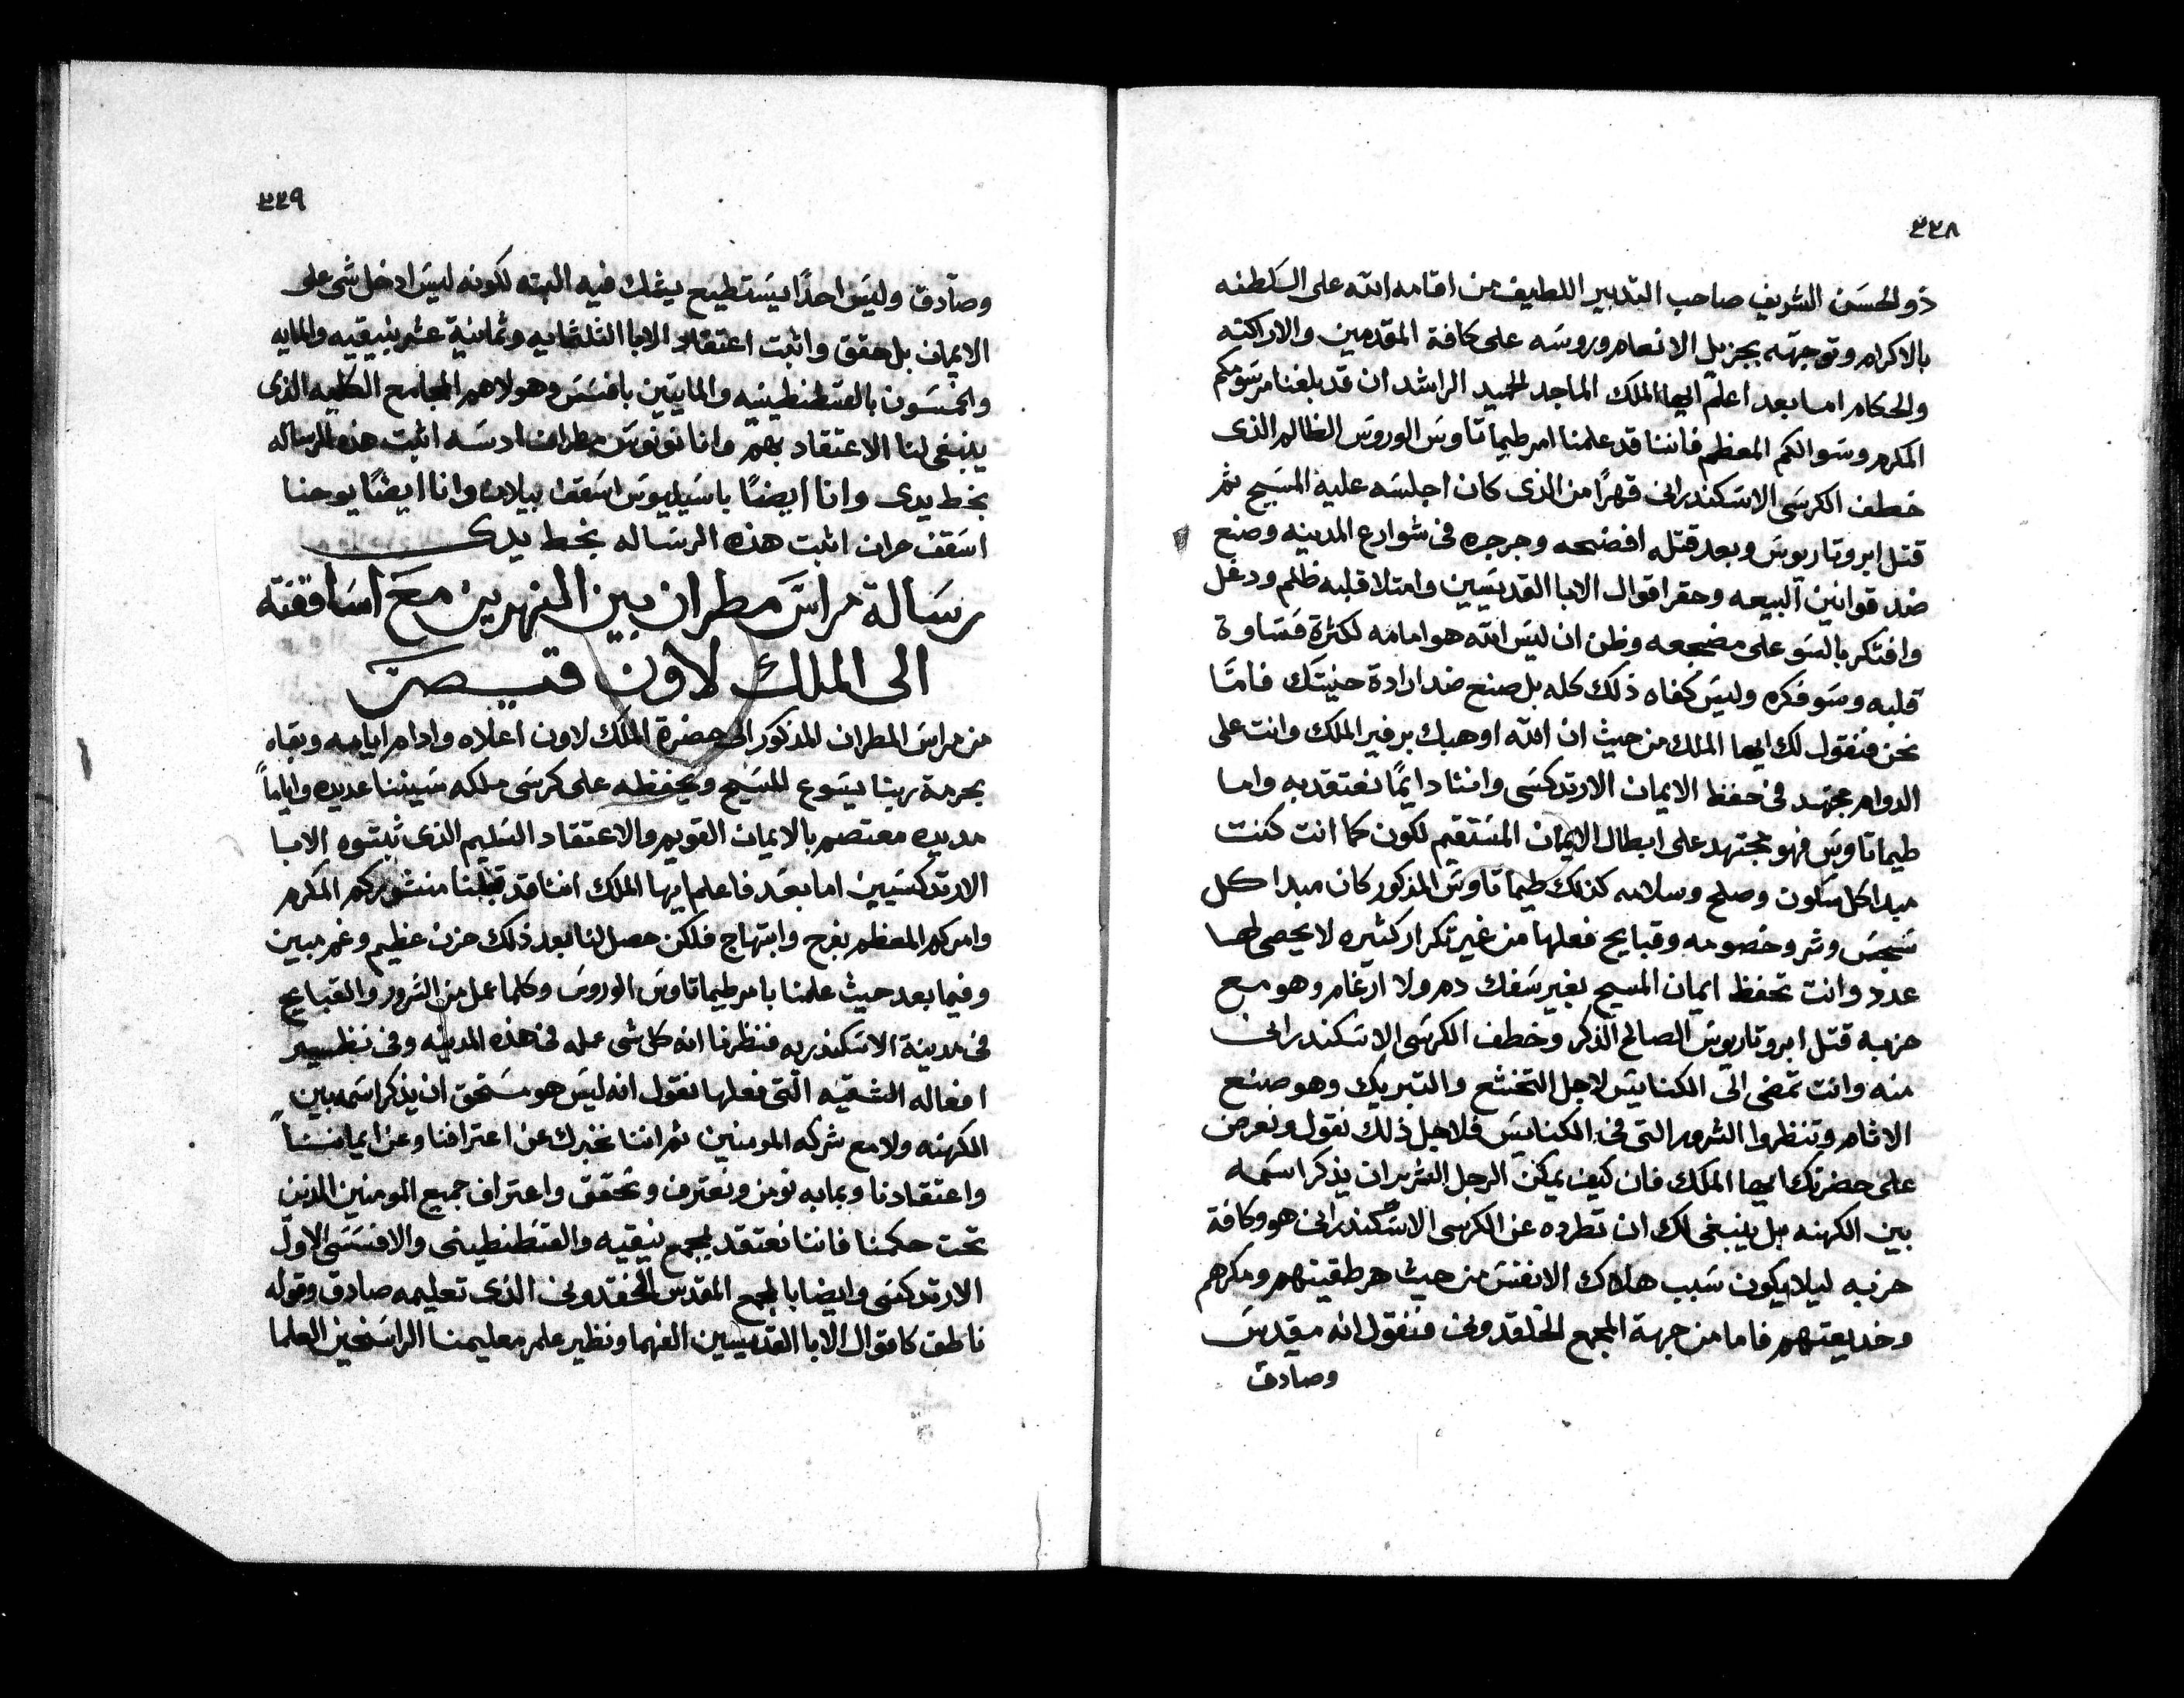 ٣٣٨
ذو الحسَن الشريف صاحب التدبير اللطيف من اقامه الله على السَلطنه
بالاكرام وتوجهّه بجزيل الانعام وروسَه على كافة المقدمين والاراكنه
والحكام اما بعد اعلم ايها الملك الماجد الحميد الراشد ان قد بلغنا مرسَومكم
المكرم وسَوالكم المعظم فاننا قد علمنا امر طيماتاوسَ الوروسَ الظالم الذى
خطف الكرسَى الاسَكندرانى قهرًا من الذى كان اجلسَه عليه المسَيح ثم
قتل ابروتاريوسَ وبعد قتله افضحه وجرجره فى شوارع المدينه وصنع
ضد قوانين البيعه وحقر اقوال الابا القديسَيين وامتلا قلبه ظلم ودغل
وافتكر بالسَو على مضجعه وظن ان ليسَ الله هو امامه لكثرة قسَاوة
قلبه وسَو فكره وليسَ كفاه ذلك كله بل صنع ضد ارادة حنيتَك فامَّا
نحن فنقول لك ايها الملك من حيث ان الله اوهبك برفير الملك وانت على
الدوام مجتهد فى حفظ الايمان الارتدكسَى واننا دايمًا نعتقد به واما
طيماتاوسَ فهو مجتهد على ابطال الايمان المسَتقيم لكون كما انت كنت
مبدا كل سَلون وصلح وسلامه كذلك طيماتاوسَ المذكور كان مبدا كل
سَجسَ وشر وخصومه وقبايح فعلها من غير تكرار كثيره لا يحصى لها
عدد وانت تحفظ ايمان المسيح بغير سَفك دم ولا ارغام وهو مع
حزبه قتل ابروتاريوسَ الصالح الذكر وخطف الكرسَى الاسَكندرانى
منه وانت تمضى الى الكنايسَ لاجل التخشع والتبريك وهو صنع
الاثام وتنظروا الشرور التى فى الكنايسَ فلاجل ذلك نقول ونعرض
على حضرتك ايها الملك فان كيف يمكن الرجل الشرير ان يذكر اسَمه
بين الكهنه بل ينبغى لك ان تطرده عن الكرسى الاسَكندرانى هو وكافة
حزبه ليلا يكون سَبب هلاك الانفسَ من حيث هرطقيتهم ومكرهم
وخديعتهم فاما من جهة المجمع الخلقدونى فنقول انه مقدسَ
وصادق
٣٣٩
وصادق وليسَ احدًا يسَتطيع يشك فيه البته لكونه ليسَ ادخل شى على
الايمان بل حقق واثبت اعتقاد الابا الثلثمايه وثمانية عشر بنيقيه والمايه
والخمسَون بالقسطنطينيه والمايتين بافسَسَ وهولاهم المجامع الكليه الذى
ينبغى لنا الاعتقاد بهم وانا نونوسَ مطران ادسَه اثبت هذه الرساله
بخط يدى وانا ايضًا باسَيليوسَ اسَقف بيلان وانا ايضًا يوحنا
اسَقف حران اثبت هذه الرسَاله بخط يدى
رسَالة مراسَ مطران بين النهرين معَ اسَاقفته
الى الملك لاون قيصر
من مراسَ المطران المذكور الى حضرة الملك لاون اعلاه وادام ايامه وبقاه
بحرمة ربنا يسَوع المسَيح ويحفظه على كرسَى ملكه سَنينًا عديده واياماً
مديده معتصم بالايمان القويم والاعتقاد السَليم الذى ثبتوه الابا
الارتدكسَيين اما بعَد فاعلم ايها الملك اننا قد قبلنا منشوركم المكرم
وامركم المعظم بفرح وابتهاج فلكن حصل لنا بعد ذلك حزن عظيم وغم مبين
وفيما بعد حيث علمنا بامر طيماتاوسَ الوروسَ وكلما عمل من الشرور والقبايح
فى مدينة الاسَكندريه فنظرنا انه كل شى عمله فى هذه المدينه وفى نظير
افعاله الشقيّه التى فعلها نقول انه ليسَ هو مسَتحق ان يذكر اسَمه بين
الكهنه ولا مع شركه المومنين ثم اننا نخبرك عن اعترافنا وعن ايماننا
واعتقادنا وبما به نومن ونعترف ونحقق واعتراف جميع المومنين الذين
تحت حكمنا فاننا نعتقد بمجمع نيقيه والقسَطنطينى والافسَسَى الاول
الارتدكسَى وايضا بالمجمع المقدس الخلقدونى الذى تعليمه صادق وقوله
ناطق كاقوال الابا القديسيين الفهما ونظير علم معليمنا الراسَخين العلما